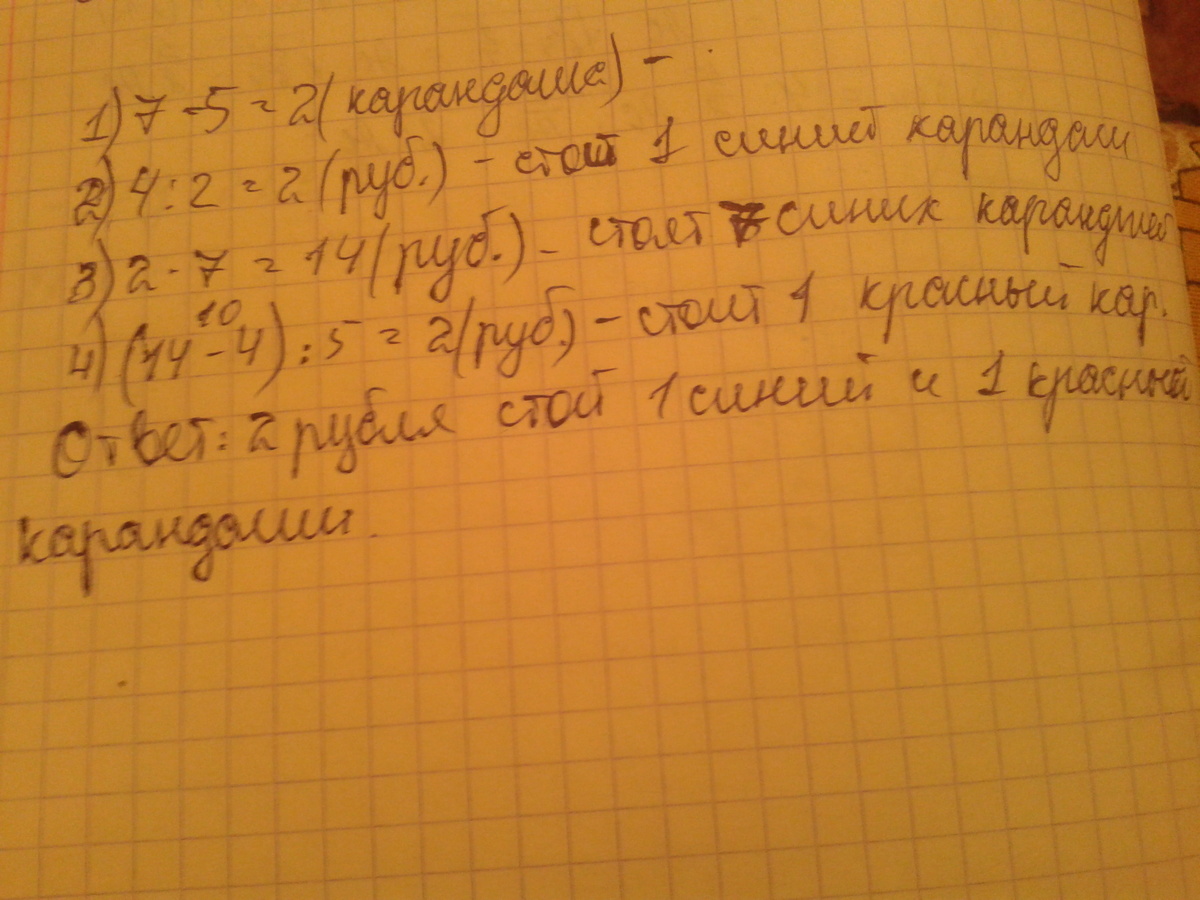 1) 7 - 5 = 2 (карандаша) -
2) 4 : 2 = 2 (руб.) - стоит 1 синий карандаш
3) 2 · 7 = 14 (руб.) - стоят 7 синих карандшей
10
4) (14 - 4) : 5 = 2 (руб.) - стоит 1 красный кар.
Ответ: 2 рубля стои 1 синий и 1 красный
карандаши.